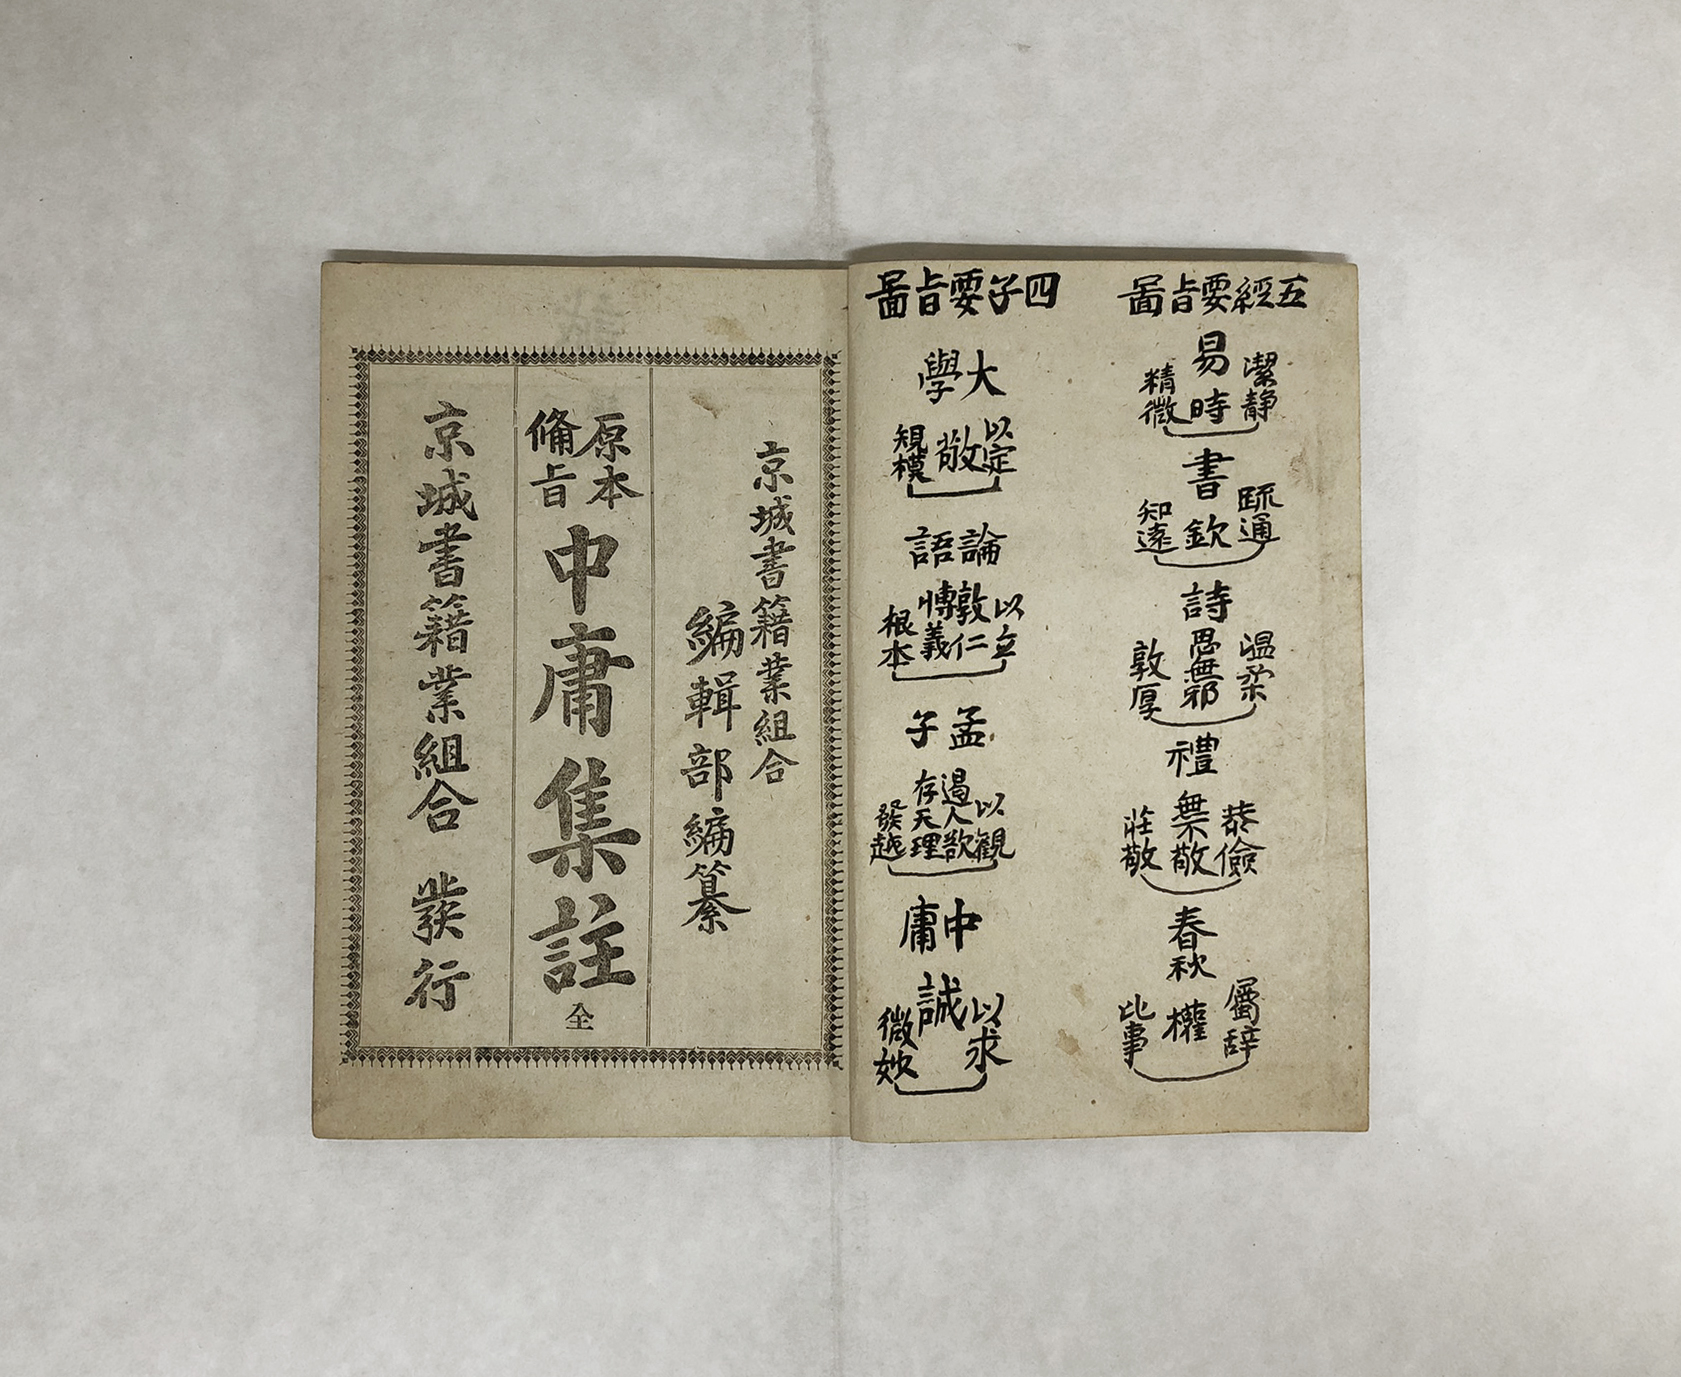 五經要旨啚
易
潔靜
時
精微
書
疏通
欽
知遠
詩
温柔
思無邪
敦厚
禮
恭儉
無不敬
莊敬
春秋
屬辭
權
比事
四子要旨啚
大學
以定
敬
規模
論語
以立
敦仁
博義
根本
孟子
以觀
遏人欲
存天理
發越
中庸
以求
誠
微妙
京城書籍業組合
編輯部編纂
原本
備旨
中庸集註
全
京城書籍業組合 發行